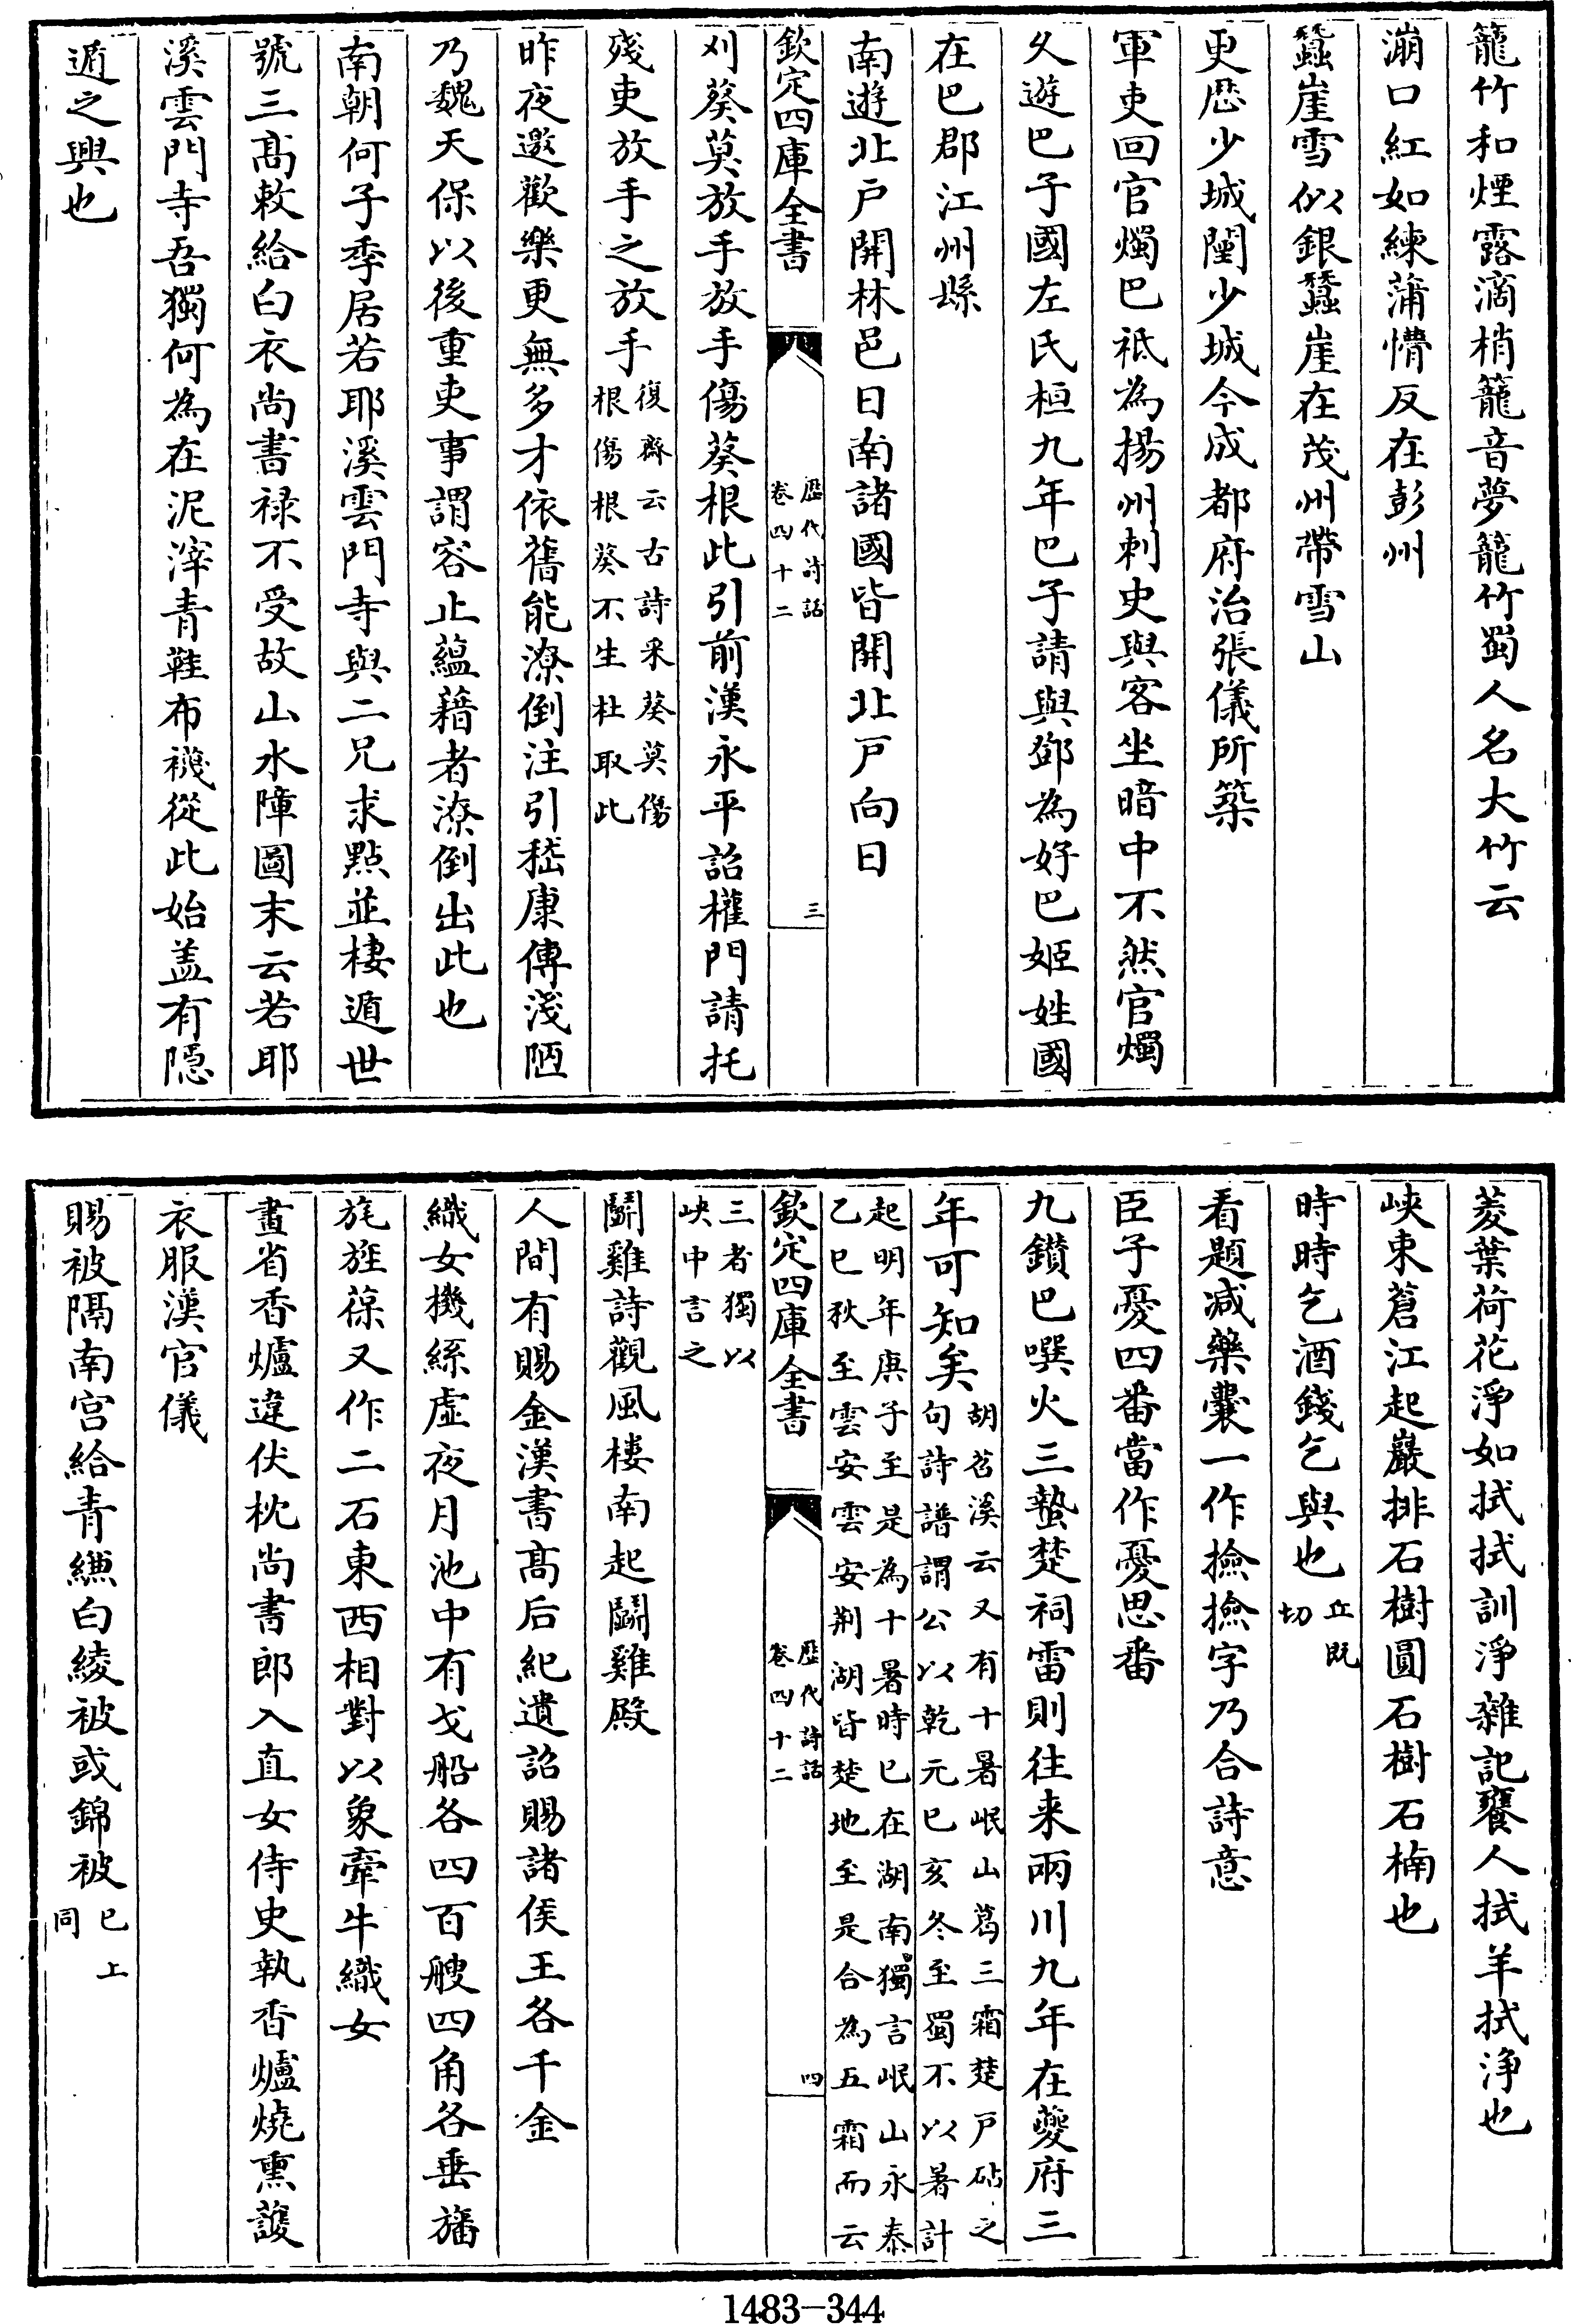 籠竹和煙露滴梢籠音夢籠竹蜀人名大竹云
漰口紅如練蒲懵反在彭州
蠶崖雪似銀蠶崖在茂州帶雪山
更歴少城闉少城今成都府治張儀所築
軍吏回官燭巴祗為揚州刺史與客坐暗中不然官燭
久遊巴子國左氏桓九年巴子請與鄧為好巴姬姓國
在巴郡江州縣
南遊北户開林邑日南諸國皆開北戸向日
欽定四庫全書
歴代詩話
卷四十二
三
刈葵莫放手放手傷葵根此引前漢永平詔權門請托
殘吏放手之放手
復齋云古詩采葵莫傷
根傷根葵不生杜取此
昨夜邀歡樂更無多才依舊能潦倒注引嵇康傳淺陋
乃魏天保以後重吏事謂容止蘊藉者潦倒出此也
南朝何子季居若耶溪雲門寺與二兄求點並棲遁世
號三髙敕給白衣尚書禄不受故山水障圖末云若耶
溪雲門寺吾獨何為在泥滓青鞋布襪從此始盖有隠
遁之興也
菱葉荷花淨如拭拭訓淨雜記饔人拭羊拭浄也
峽束蒼江起巖排石樹圓石樹石楠也
時時乞酒錢乞與也
丘既
切
看題减藥囊一作撿撿字乃合詩意
臣子憂四番當作憂思番
九鑽巴噀火三蟄楚祠雷則往来兩川九年在夔府三
年可知矣
胡苕溪云又有十暑岷山葛三霜楚戸砧之
句詩譜謂公以乾元己亥冬至蜀不以暑計
起明年庚子至是為十暑時已在湖南獨言岷山永泰
乙巳秋至雲安雲安荆湖皆楚地至是合為五霜而云
欽定四庫全書
歴代詩話
卷四十二
四
三者獨以
峽中言之
鬭雞詩觀風樓南起鬭雞殿
人間有賜金漢書髙后紀遺詔賜諸侯王各千金
織女機絲虚夜月池中有戈船各四百艘四角各垂旛
旄旌葆又作二石東西相對以象牽牛織女
畫省香爐違伏枕尚書郎入直女侍史執香爐燒熏護
衣服漢官儀
賜被隔南宫給青縑白綾被或錦被
已上
同
1483-344